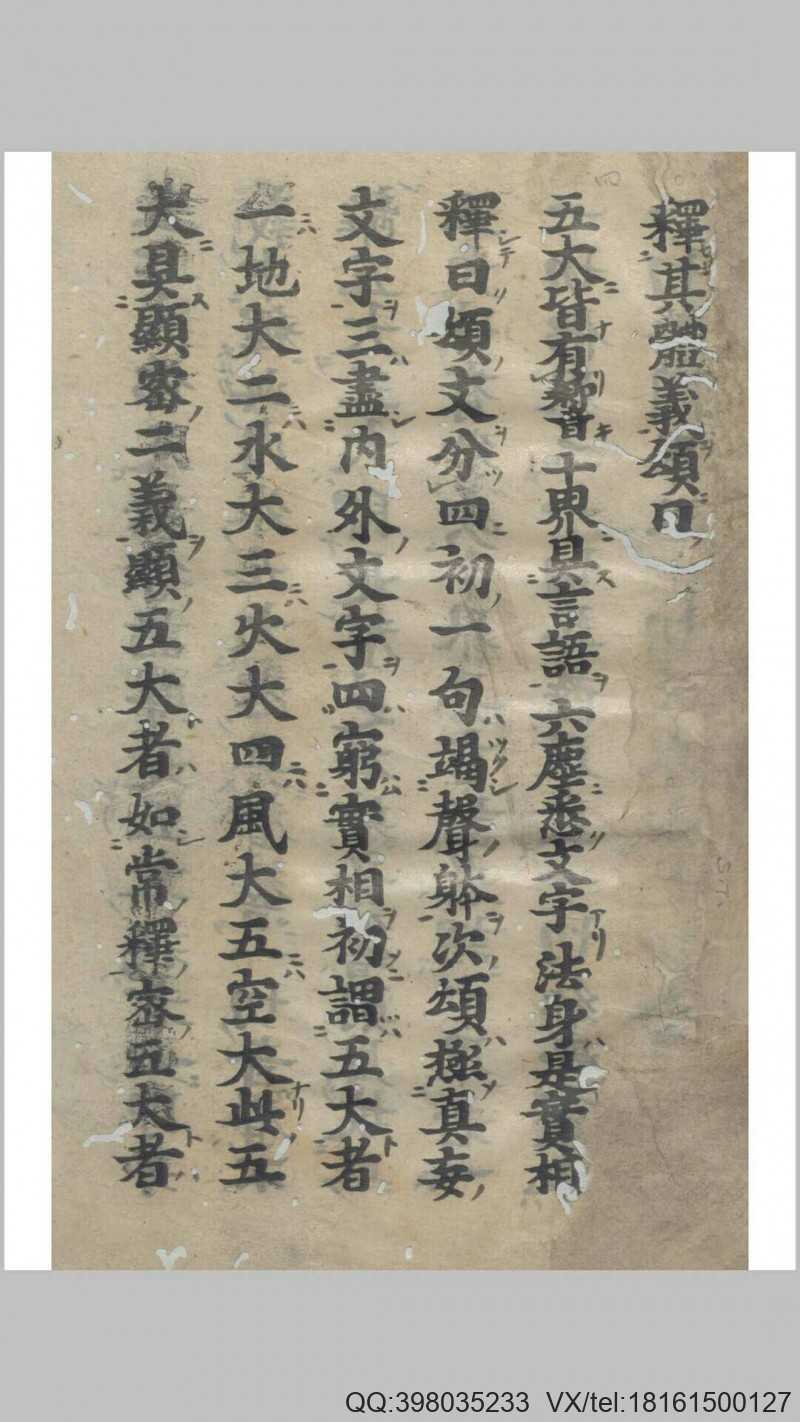 釋其體義頌曰
五大皆有響音十界具言語六塵悉文字法身是實相
釋曰頌文分四初一句竭聲躰次頌極真妄
文字三盡內外文字四窮實相初謂五大者
一地大二水大三火大四風大五空大此五
大具顯密二義顯五大者如常釋密五大者
QQ:398035233 VX/tel:18161500127